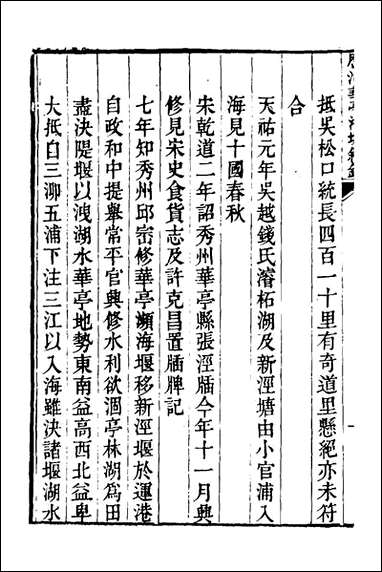 抵吳松口統長四百一十里有奇道里懸絕亦未符
合
天祐元年吳越錢氏濬柘湖及新涇塘由小官浦入
海見十國春秋
宋乾道二年詔秀州華亭縣張涇牐今年十一月興
修見宋史食貨志及許克昌置牐牌記
七年知秀州邱崈修華亭瀕海堰移新涇堰於運港
自政和中提舉常平官興修水利欲涸亭林湖爲田
盡決隄堰以洩湖水華亭地勢東南益高西北益卑
大抵自三泖五浦下注三江以入海雖決諸堰湖水